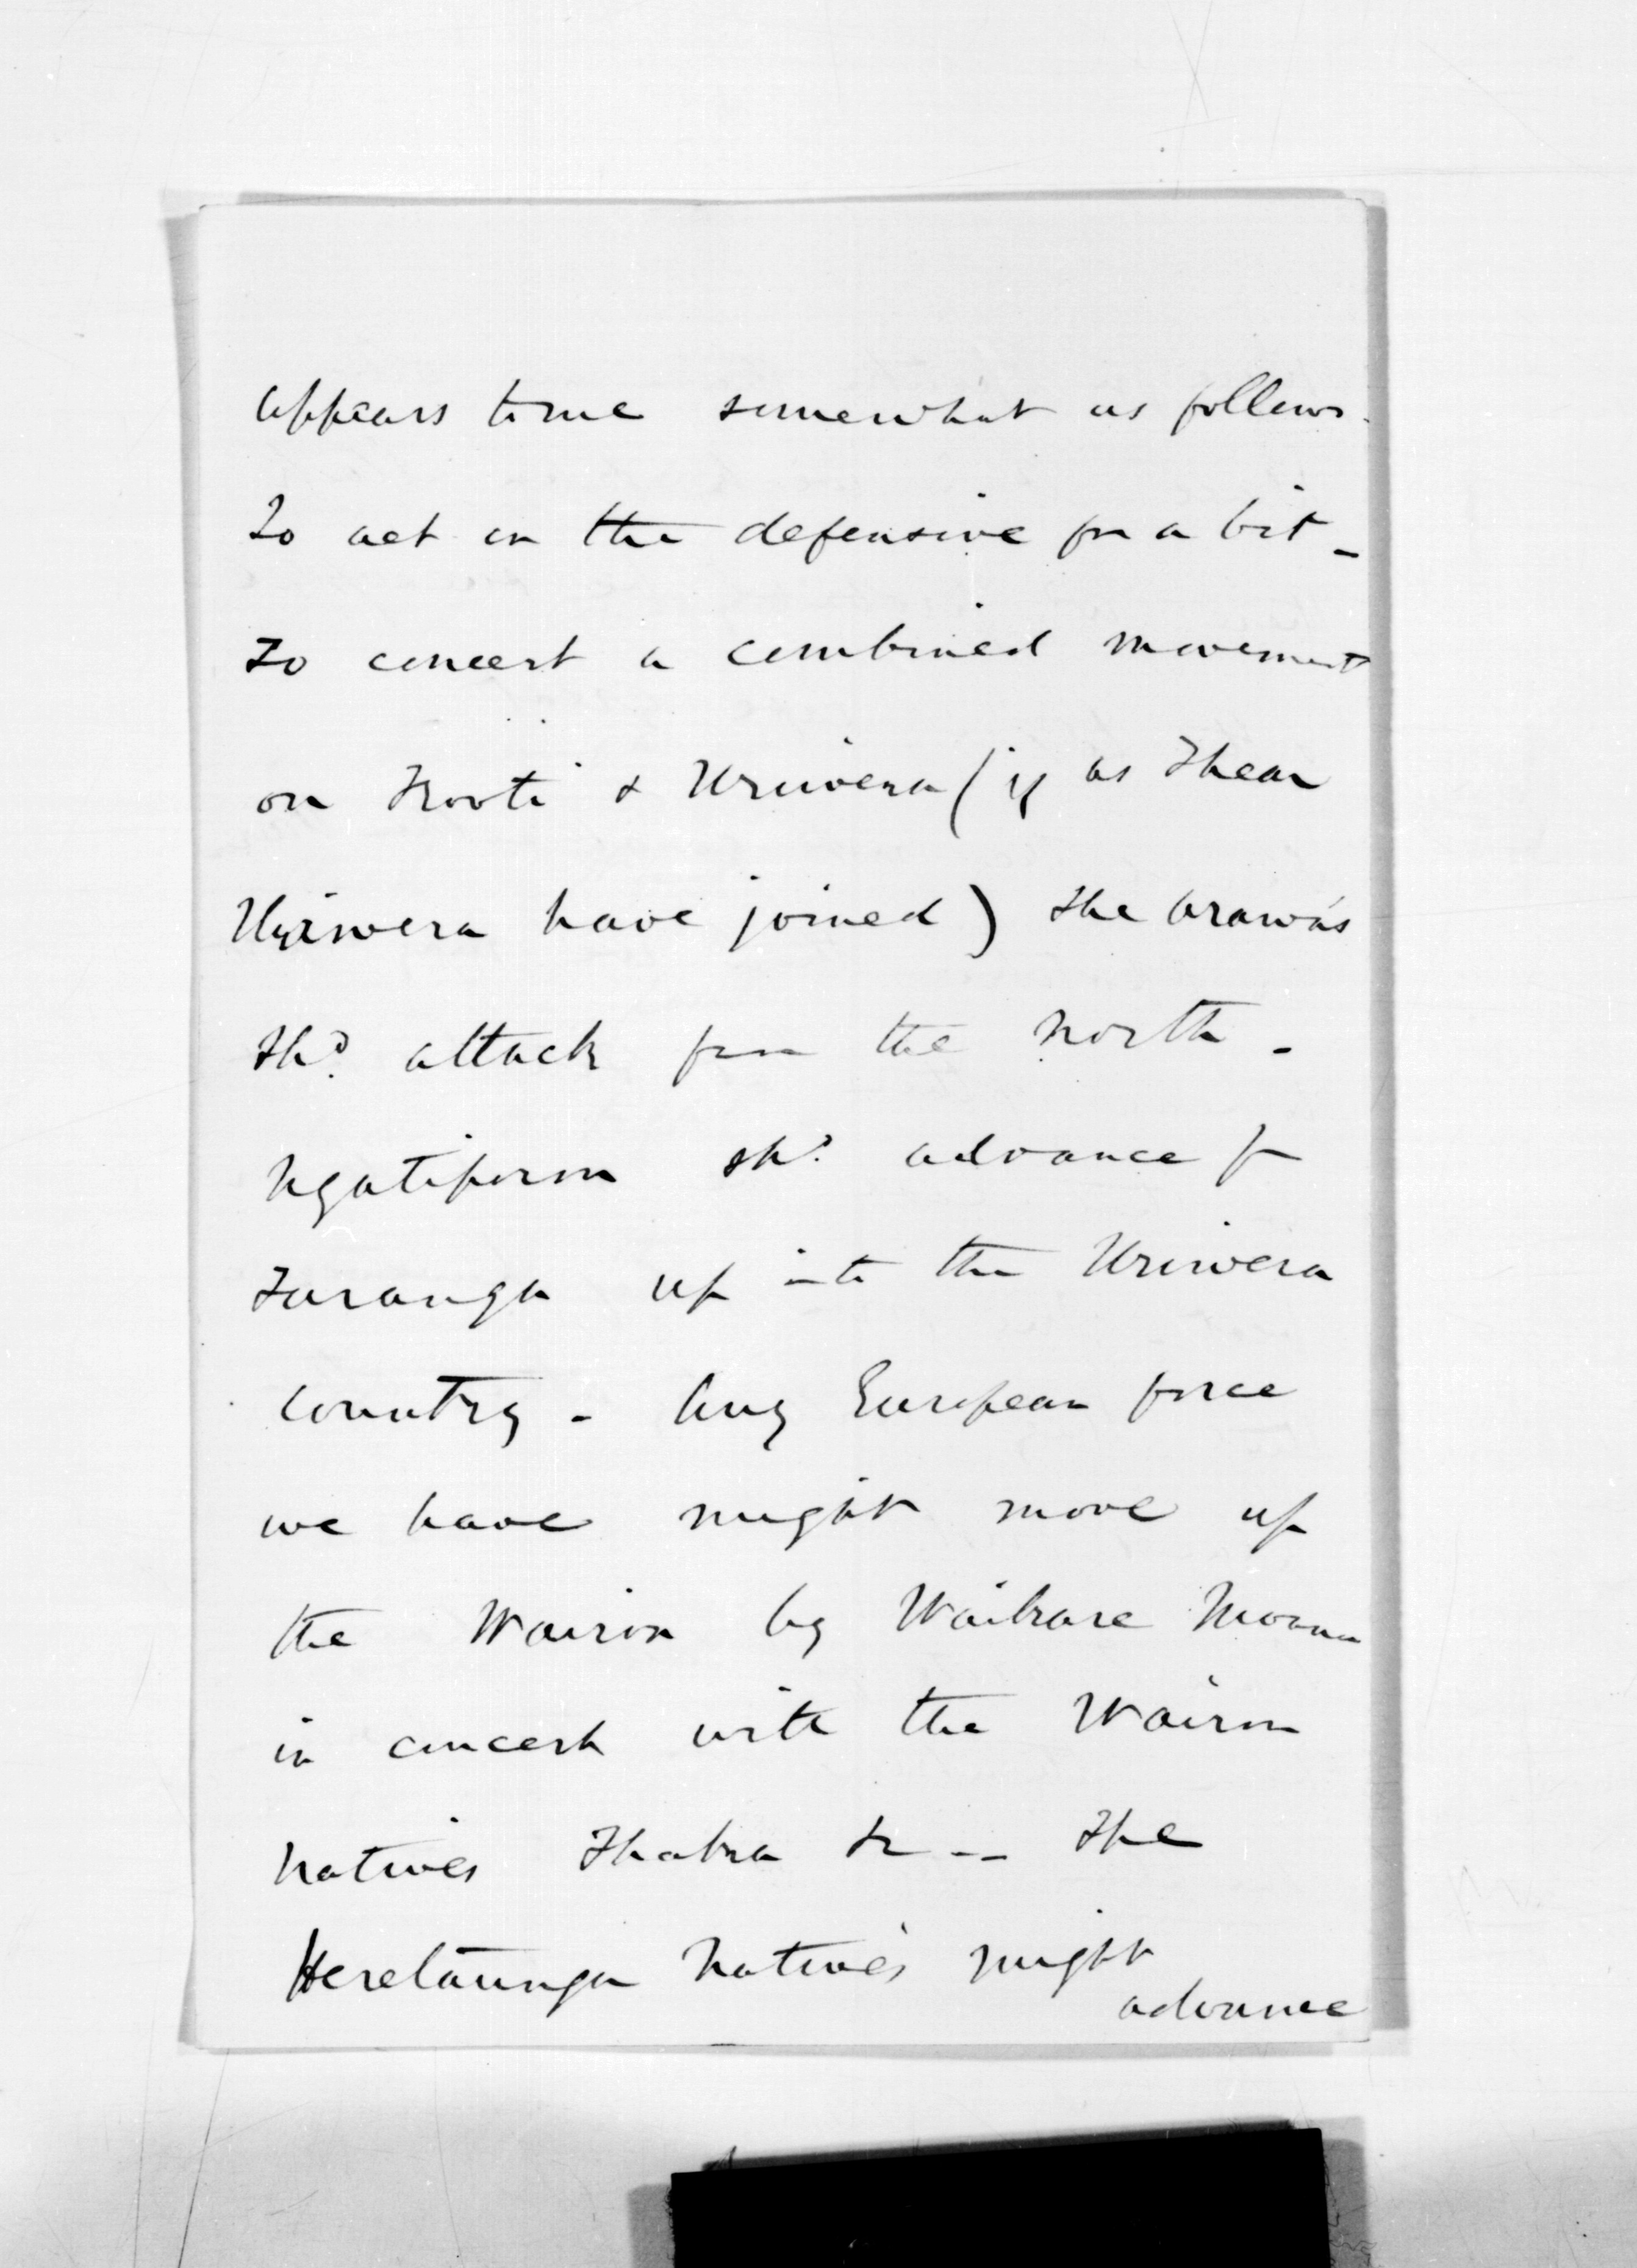 appears to me somewhat as follows.
To act on the defensive for a bit -
To concert a combined movement
on Kooti & Uriwera (if as I hear
Uriwera have joined) the Arawas
shd. attack from the north -
Ngatiporou shd. advance fr
Turanga up into the Uriwera
Country - Any European force
we have might move up
the Wairoa by Waikare Moana
in concert with the Wairoa
natives Ihaka &c -- The
Heretaunga Natives might
advance